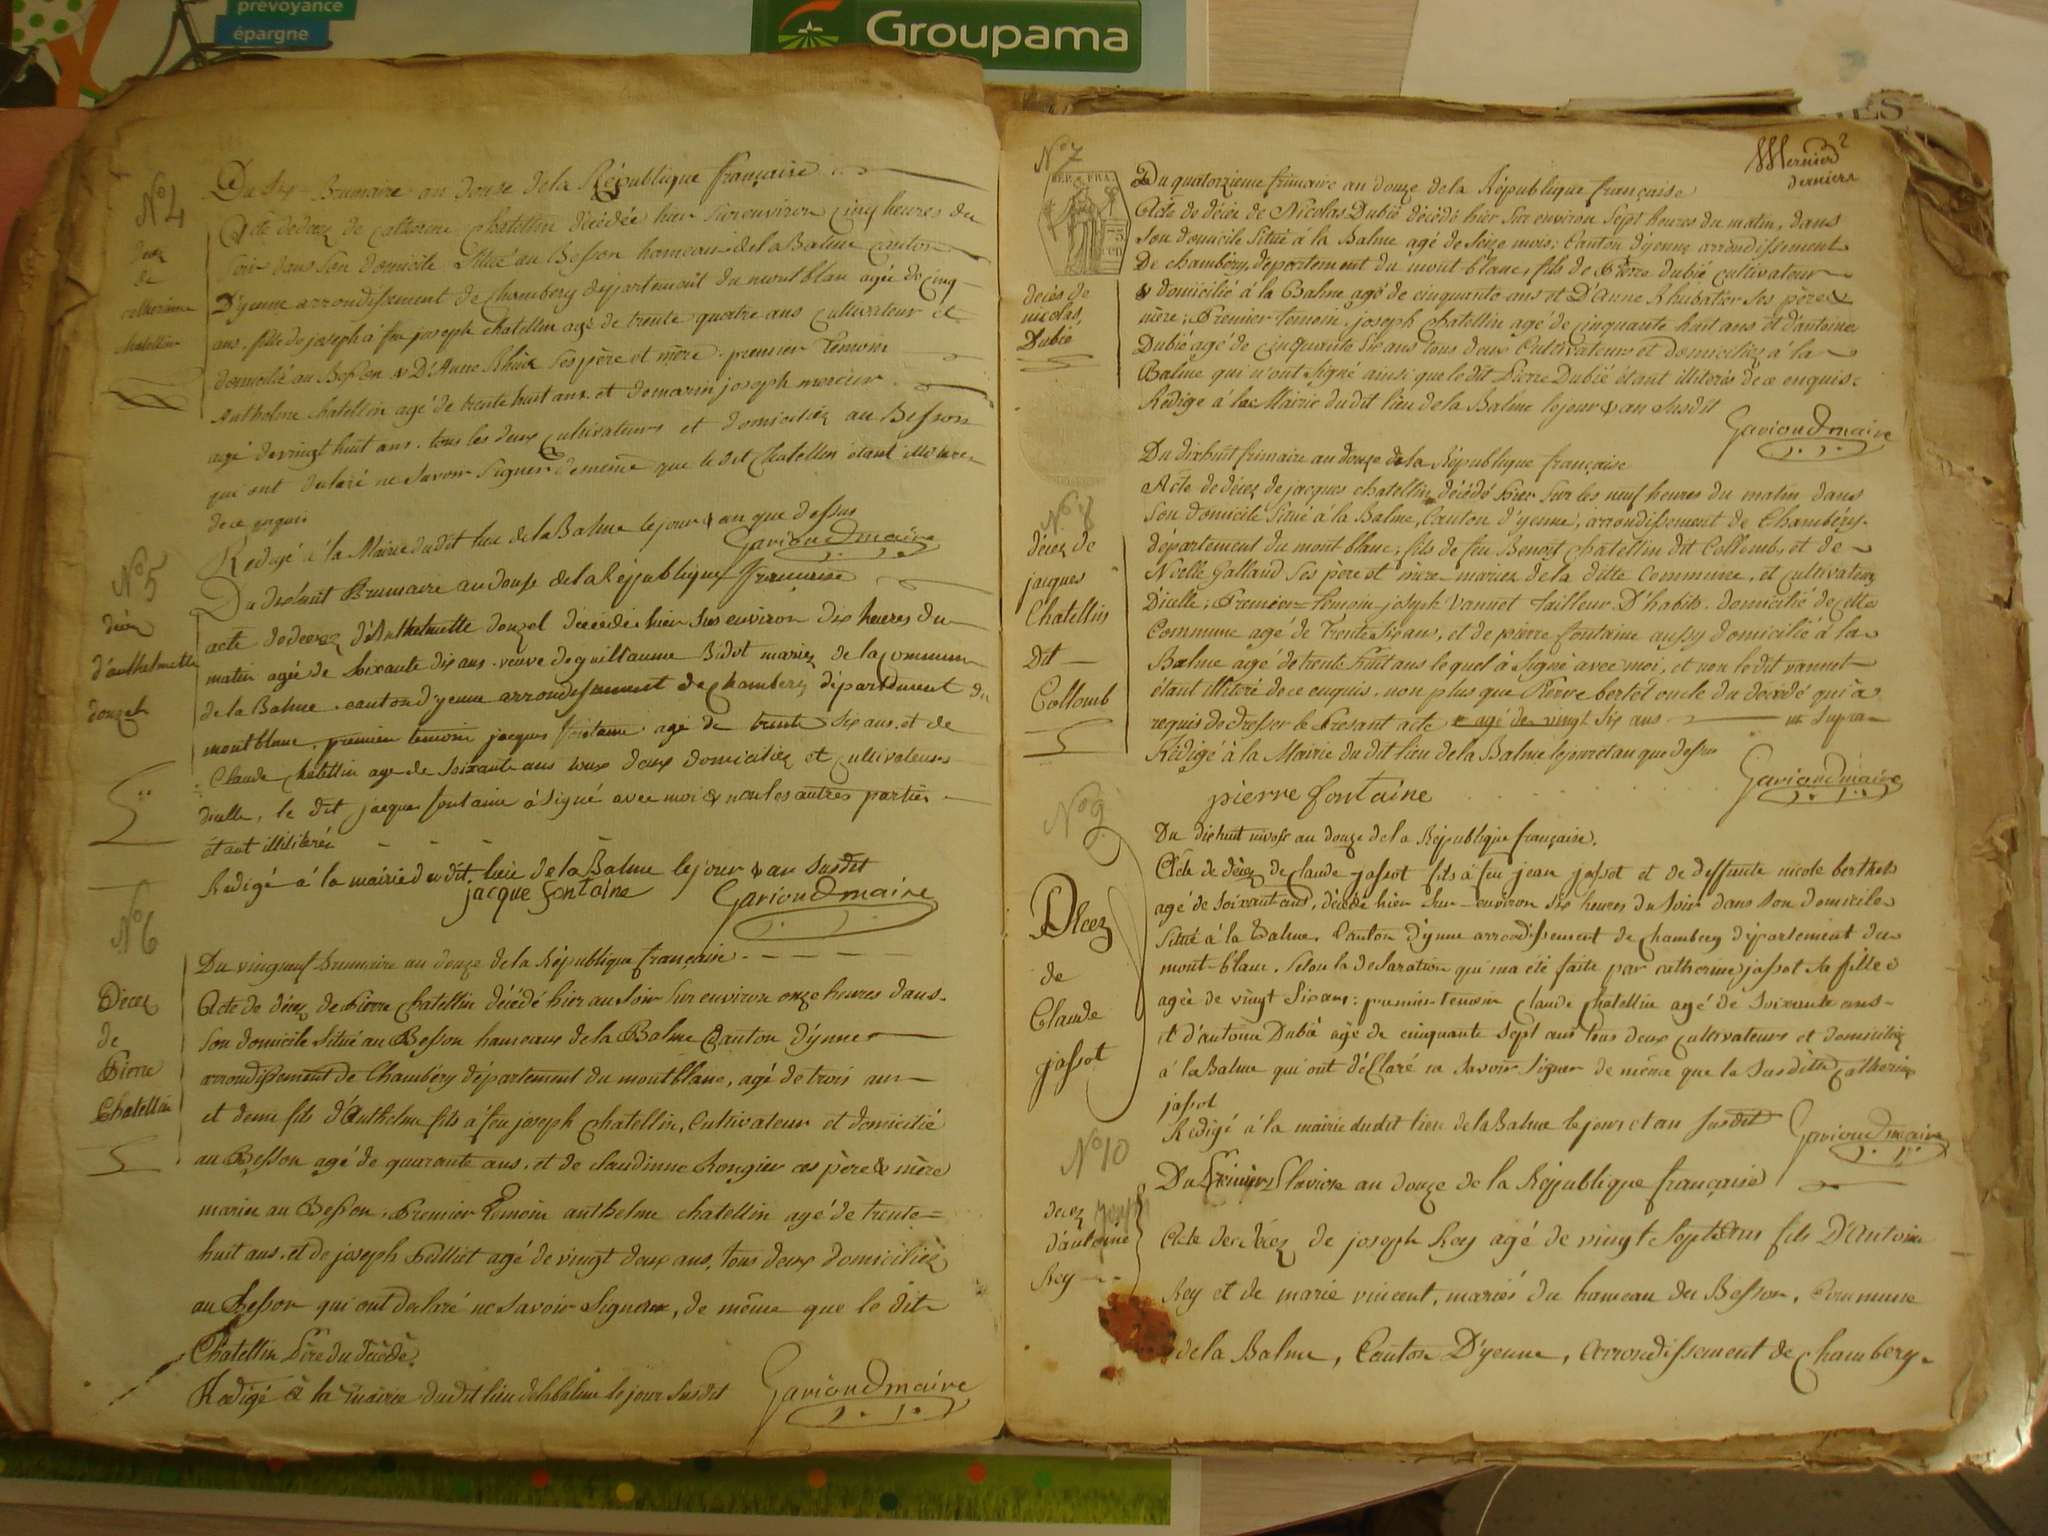 prévoyance
épargne
Groupama
N° 4
Du Six Brumaire an douze de la République française
Acte de decez de catherine chatellin décédée hier sur environ cinq heures du
soir dans son domicile Situé au Besson hameau de la Balme canton
D'yenne arrondissement de chambery département du montblanc agée de cinq
ans. fille de joseph à feu joseph chatellin agé de trente quatre ans cultivateur et
domicilié au Besson & D'Anne ses père et mère. premier Temoin
Anthelme chatellin agé de trente huit ans. et de marin joseph mercier
agé de vingt huit ans. tous les deux cultivateurs et domiciliéz au Besson
qui ont declaré ne savoir signer de même que le dit Chatellin étant
de ce enquis
Redigé à la Mairie du dit lieu de la Balme le jour & an que dessus
Garioud maire
decez
de
catherinne
chatellin
N° 5
Du dixhuit Brumaire an douze de la République françaisse
acte de decez d'Anthelmette douzel décédée hier sur environ dix heures du
matin agée de soixante dix ans. veuve de guillaume Bidot mariez de la commune
de la Balme. canton d'yenne arrondissement de chambery département du
montblanc. premier temoin jacques fontaine. agé de trente six ans. et de
Claude chatellin age de soixante ans tous deux domiciliéz et cultivateurs
dicelle, le dit jacques fontaine à signé avec moi & non les autres parties
étant
Redigé à la mairie du dit lieu de la Balme le jour & an susdit
jacque fontaine Garioud maire
décéz
d'anthelmette
douzel
N° 6
Du vingneuf Brumaire an douze de la République française
Acte de décez de Pierre Chatellin décédé hier au soir sur environ onze heures dans
son domicile situé au Besson hameaux de la Balme Canton d'ynne
arrondissement de Chambéry département du montblanc, agé de trois ans
et demi fils d'Anthelme fils à feu joseph chatellin, Cultivateur et domicilié
au Besson agé de quarante ans, et de claudinne Rongier ces père & mère
mariez au Besson. Premier Temoin anthelme chatellin agé de trente=
huit ans. et de joseph agé de vingt deux ans, tous deux domiciliéz
au Besson qui ont declaré ne savoir signer, de même que le dit
Chatellin Père du décédé.
Redigé à la mairie du dit lieu de la balme le jour susdit
Garioud maire
Décez
de
Pierre
Chatellin
N° 7
REP. FRA.
75
cen
derniers
Du quatorzieme frimaire an douze de la République française
Acte de décez de Nicolas Dubié décédé hier sur environ sept heures du matin, dans
son domicile situé à la Balme agé de seize mois; Canton d'yenne arrondissement
De chambéry, departement du mont-blanc, fils de Pierre dubié cultivateur
& domicilié à la Balme agé de cinquante ans et D'Anne Rhubatier ses père &
mère; Premier temoin, joseph chatellin agé de cinquante huit ans et d'antoine
Dubié agé de cinquante six ans tous deux Cultivateurs et domiciliéz à la
Balme qui n'ont signé ainsi que le dit Pierre Dubié étant illiterés de ce enquis.
Rédigé à la Mairie du dit lieu de la Balme le jour & an susdit
Garioud maire
decés de
nicolas
Dubié
N° 8
Du dixhuit frimaire an douze de la République française
Acte de décez de jacques chatellin décédé hier sur les neuf heures du matin dans
son domicile situé à la Balme, Canton d'yenne, arrondissement de Chambéry.
département du mont blanc; fils de feu Benoît Chatellin dit Collomb, et de
Noelle Galland ses père et mère mariez de la ditte Commune, et cultivateurs
Dicelle; Premier temoin joseph vannet tailleur D'habits. domicilié de cette
Commune agé de Trente six ans, et de pierre fontaine aussy domicilié à la
Balme agé de trente huit ans lequel à signé avec moi, et non le dit vannet
étant illitéré de ce enquis. non plus que Pierre bertet oncle du décédé qui a
requis de dresser le Présant acte agé de vingt six ans ut supra
Rédigé à la Mairie du dit lieu de la Balme le jour et an que dessus
pierre fontaine Garioud maire
décez de
jacques
Chatellin
Dit
Collomb
N° 9
Du dixhuit nivose an douze de la République française.
Acte de décez de Claude jassot fils à feu jean jassot et de deffunte nicole berthet
agé de soixant ans, décédé hier sur environ six heures du soir dans son domicile
situé à la Balme, Canton d'ynne arrondissement de chambery département du
mont-blanc. selon la declaration qui ma été faite par catherine jassot sa fille
agée de vingt six ans: premier temoin Claude chatellin agé de soixante ans
et d'antoine Dubié agé de cinquante sept ans tous deux cultivateurs et domiciliéz
à la Balme qui ont déclaré ne savoir signer de même que la susditte catherine
jassot
Redigé à la mairie du dit lieu de la Balme le jour et an susdit
Garioud maire
Décez
de
Claude
jassot
N° 10
Du Pluviose an douze de la République française
Acte de décez de joseph Rey agé de vingt sept ans fils D'antoine
Rey et de marie vincent, mariés du hameau du Besson, Commune
de la Balme, Canton D'yenne, Arrondissement de Chambery.
decez
d'antoine
Rey